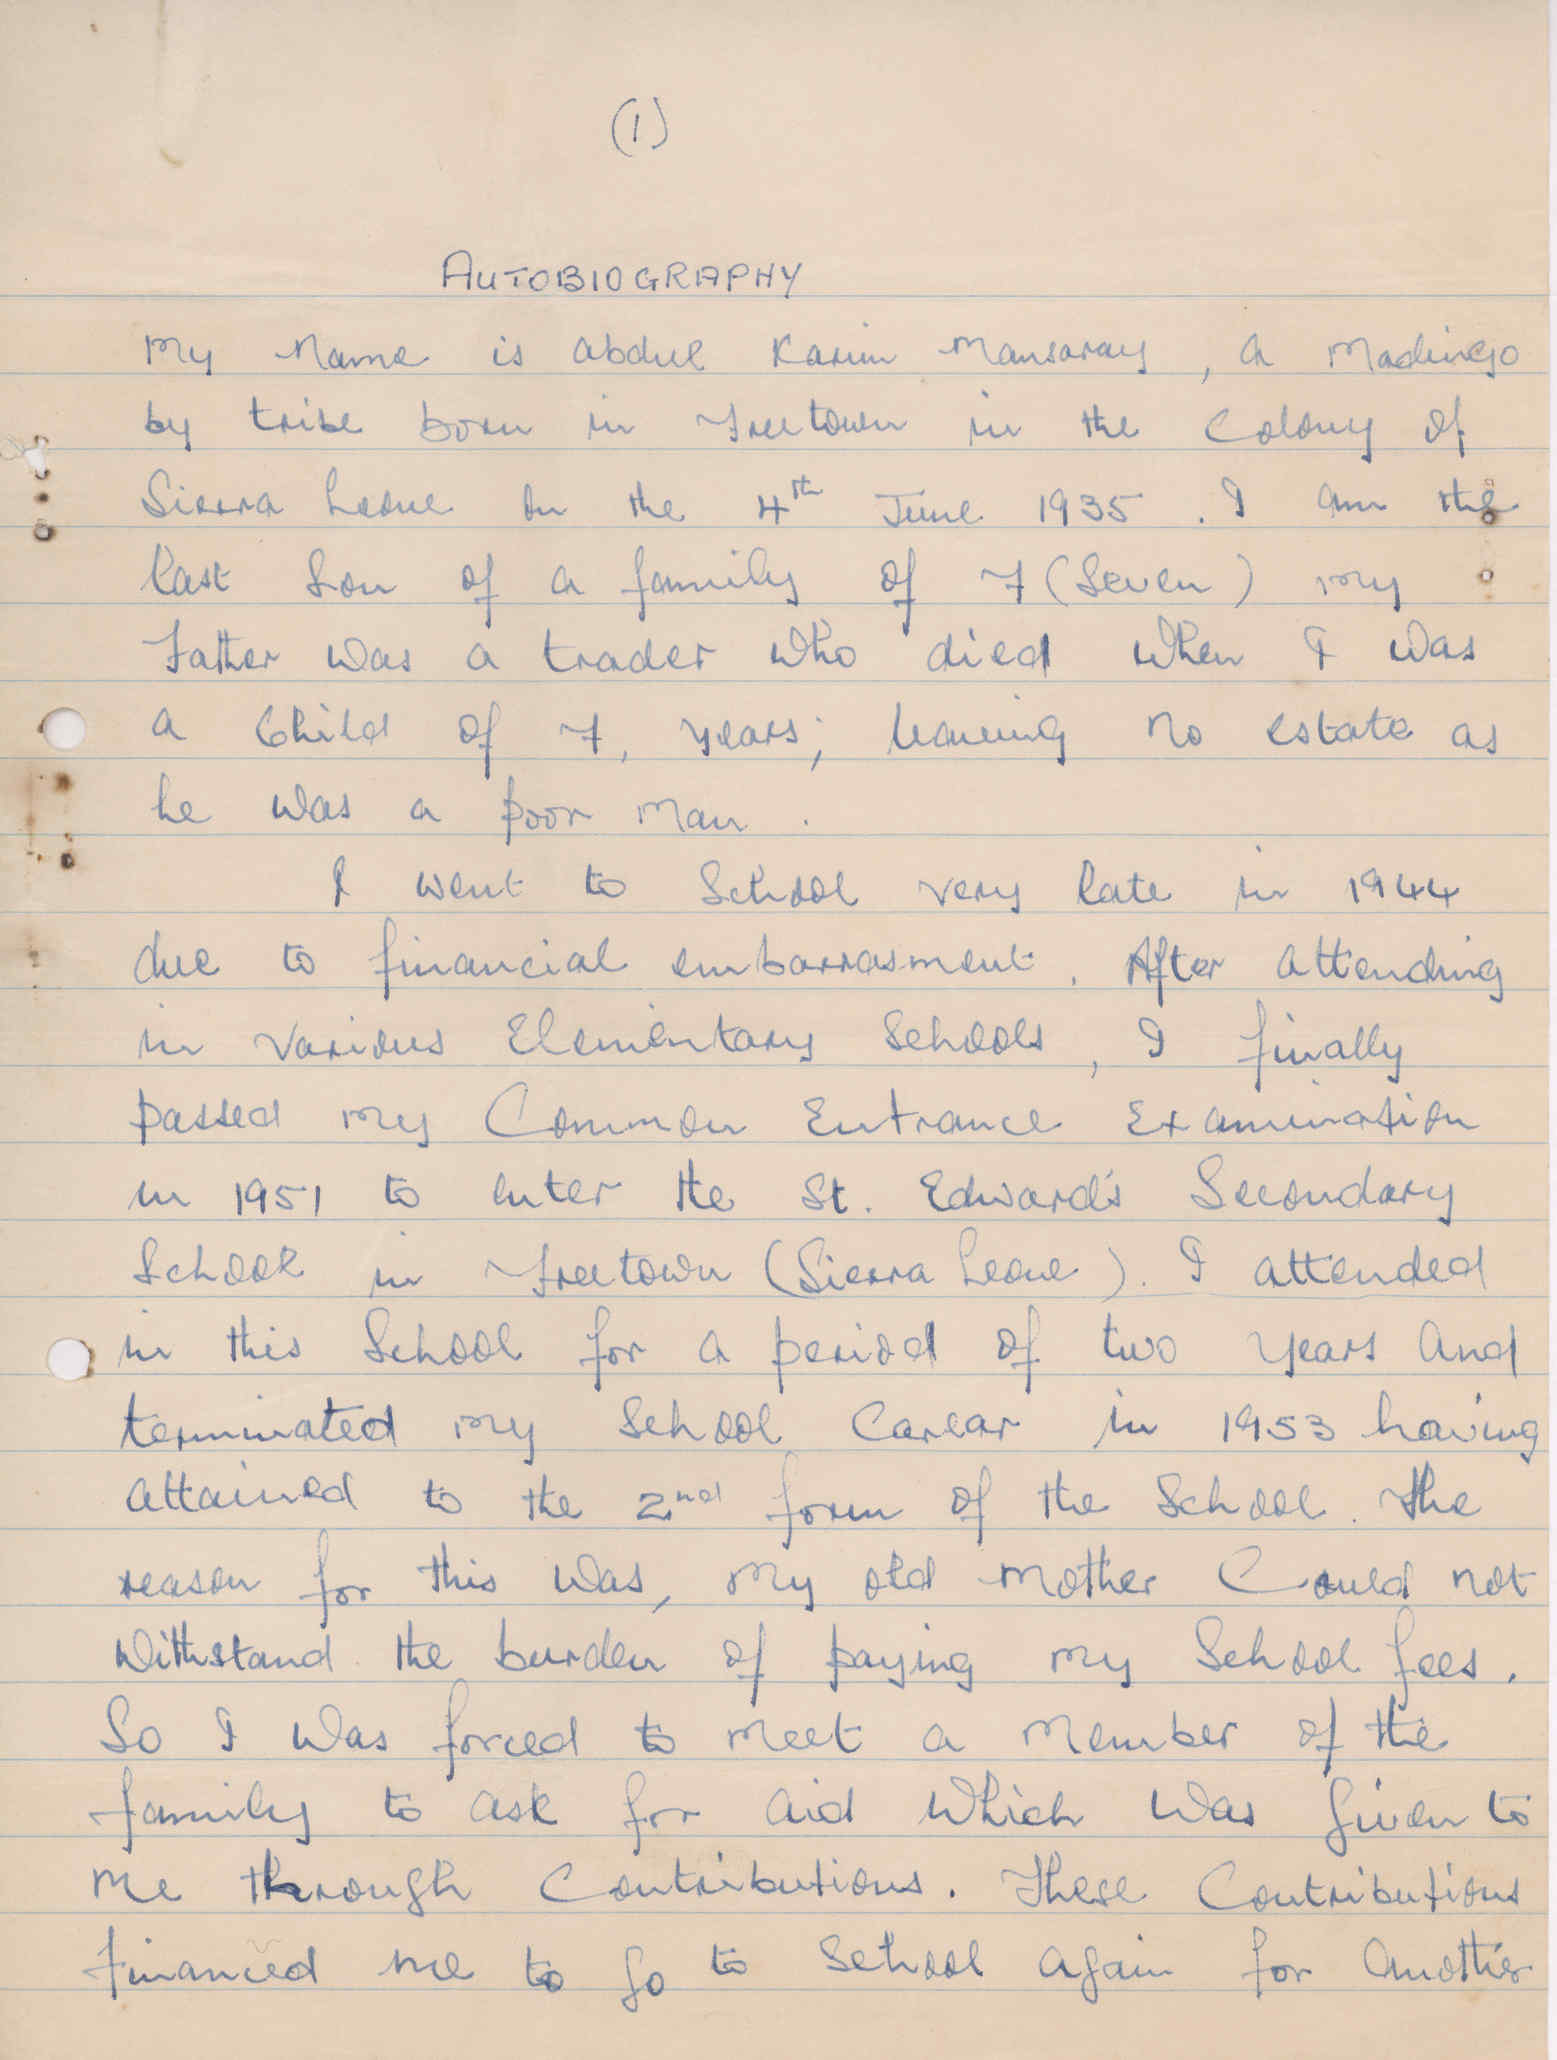 (1)
AUTOBIOGRAPHY
My Name is Abdul Karim Mansaray, a Madingo
by tribe born in Freetown in the Colony of
Sierra Leone on the 4th June 1935. I am the
last Son of a family of 7 (Seven) my
Father was a trader who died when I was
a Child of 7, years; leaving no estate as
he was a poor man.
I went to School very late in 1944
due to financial embarrasment. After attending
in various Elementary Schools, I finally
passed my Common Entrance Examination
in 1951 to enter the St. Edward's Secondary
School in Freetown (Sierra Leone). I attended
in this School for a period of two years and
terminated my School Carear in 1953 having
attained to the 2nd form of the School. The
reason for this was, my old mother Could not
withstand the burden of paying my School fees.
So I was forced to meet a member of the
family to ask for aid which was given to
me through Contributions. These Contributions
financed me to go to School again for another